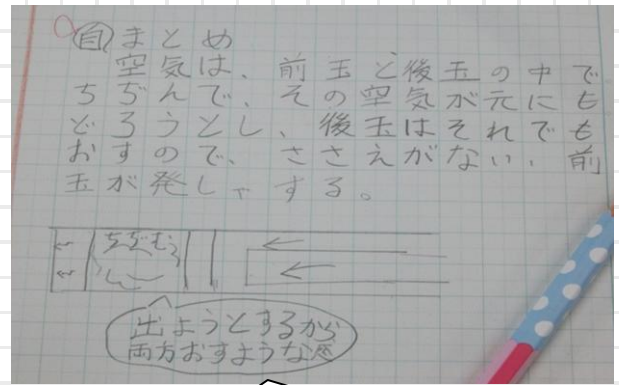 自まとめ
空気は、前玉と後玉の中で
ちぢんで、その空気が元にも
どろうとし、後玉はそれでも
おすので、ささえがない、前
玉が発しゃする。
ちぢむ
出ようとするから
両方おすような